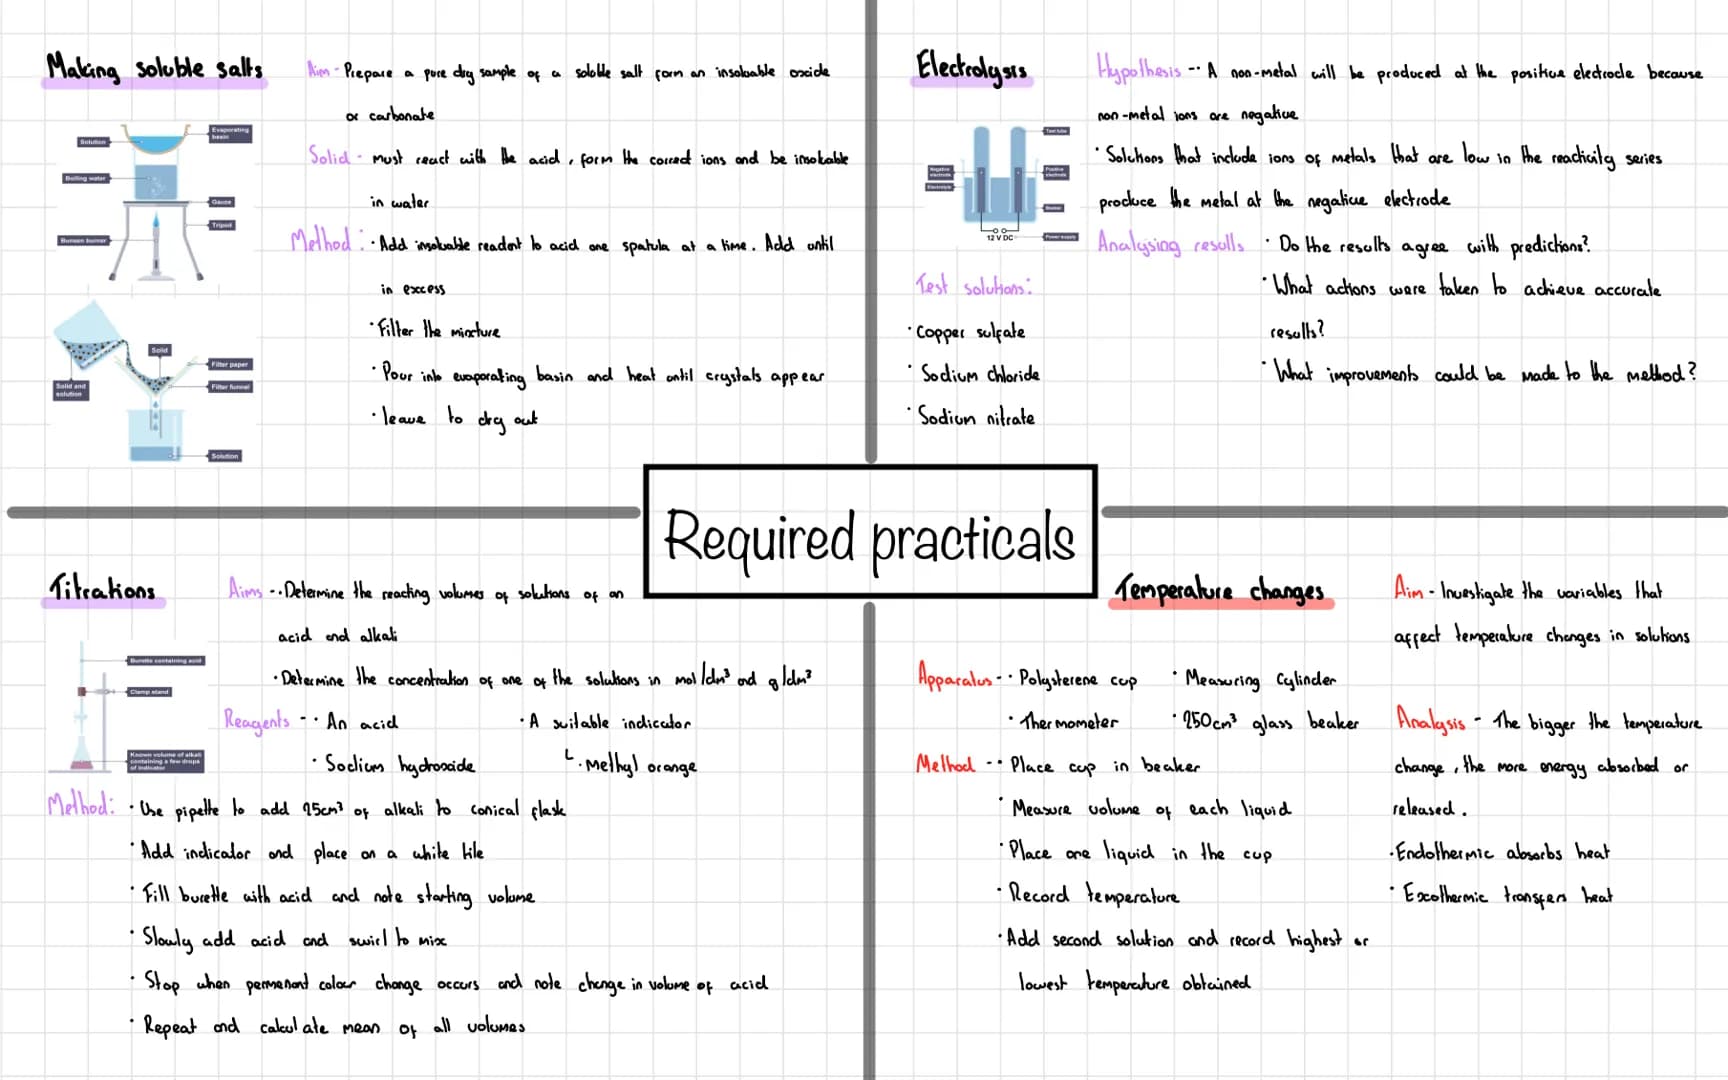 Making soluble salts
Aim - Prepare a pure dry sample of a soluble salt form an insoluable oxide
or carbonate
Solution
Evaporating
basin
Boiling water
Gauze
Tripod
Bunsen burner
Solid - must react with the acid, form the correct ions and be insoluable
in water
Method: · Add insoluable readent to acid one spatula at a time. Add until
in excess
· Filter the mixture
· Pour into evaporating basin and heat until crystals appear
· leave to dry out
Solid
Filter paper
Filter funnel
Solid and
solution
Solution
Electrolysis
Hypothesis - · A non-metal will be produced at the positive electrode because
non-metal ions are negative
· Solutions that include ions of metals that are low in the reactivity series
produce the metal at the negative electrode
Test tube
Negative
electrode
Positive
electrode
Electrolyte
Beaker
12 V DC
Power supply
Analysing results · Do the results agree with predictions?
· What actions were taken to achieve accurate
results?
· What improvements could be made to the method?
Test solutions:
· Copper sulfate
· Sodium chloride
· Sodium nitrate
Required practicals
Titrations
Aims - · Determine the reacting volumes of solutions of an
acid and alkali
· Determine the concentration of one of the solutions in mol/dm³ and g/dm³
Burette containing acid
Clamp stand
Known volume of alkali
containing a few drops
of indicator
Reagents - · An acid
· Sodium hydroxide
· A suitable indicator
· Methyl orange
Method: · Use pipette to add 25cm³ of alkali to conical flask
· Add indicator and place on a white tile
· Fill burette with acid and note starting volume
· Slowly add acid and swirl to mix
· Stop when permanant colour change occurs and note change in volume of acid
· Repeat and calculate mean of all volumes
Temperature changes
Aim - Investigate the variables that
affect temperature changes in solutions
Apparatus - · Polysterene cup
· Thermometer
· Measuring Cylinder
· 250cm³ glass beaker
Method - · Place cup in beaker
· Measure volume of each liquid
· Place one liquid in the cup
· Record temperature
· Add second solution and record highest or
lowest temperature obtained
Analysis - The bigger the temperature
change, the more energy absorbed or
released.
· Endothermic absorbs heat
· Exothermic transfers heat